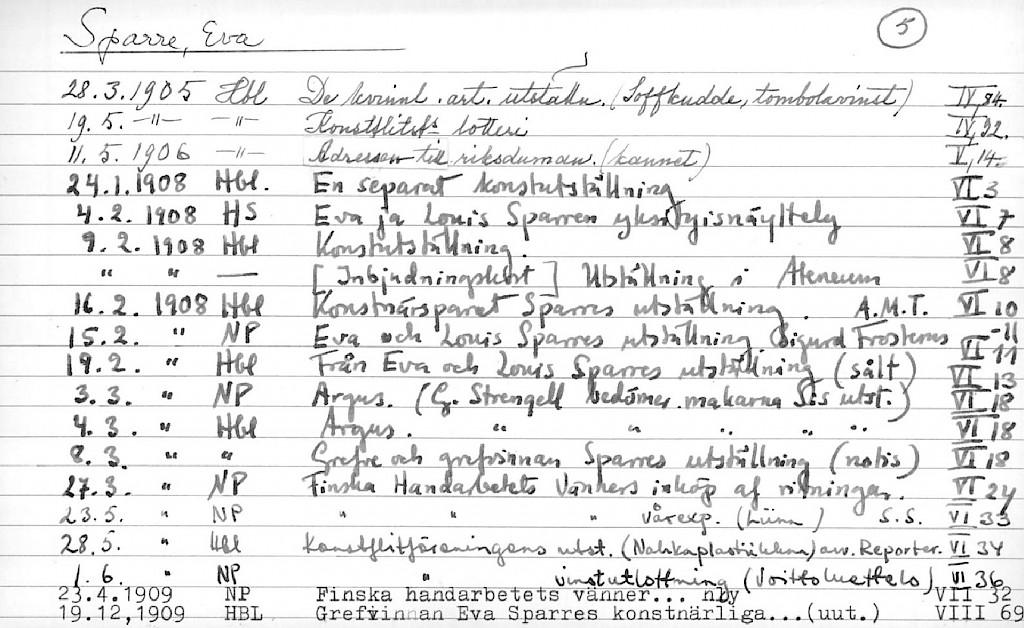 Sparre, Eva 5
28.3.1905 Hbl De kvinnl. art. utställn. (Soffkudde, tombolavinst) IV, 84.
19.5. –"– –"– Konstflitsfs lotteri IV, 92.
11.5. 1906 –"– Adressen till riksduman. (kannet) V, 14.
24.1.1908 Hbl. En separat konstutställning VI 3
4.2. 1908 HS Eva ja Louis Sparren yksityisnäyttely VI 7
9.2. 1908 Hbl Konstutställning. VI 8
" " — [Inbjudningskort] Utställning i Ateneum VI 8
16.2. 1908 Hbl Konstnärsparet Sparres utställning. A.M.T. VI 10
15.2. " NP Eva och Louis Sparres utställning (Sigurd Frosterus VI 11 -11
19.2. " Hbl Från Eva och Louis Sparres utställning (sålt) VI 13
3.3. " NP Argus. (G. Strengell bedömer makarna S:s utst.) VI 18
4.3. " Hbl Argus. " " " " " VI 18
8.3. " " Grefve och grefvinnan Sparres utställning (notis) VI 18
27.3. " NP Finska Handarbetets Vänners inköp af ritningar. VI 24
23.5. " NP " " " vårexp. ( ) S.S. VI 33
28.5. " Hbl Konstflitföreningens utst. ( ) av. Reporter. VI 34
1.6. " NP " vinstutlottning (Voittoluettelo) VI 36
23.4.1909 NP Finska handarbetets vänner... nby VII 32
19.12,1909 HBL Grefvinnan Eva Sparres konstnärliga...(uut.) VIII 69